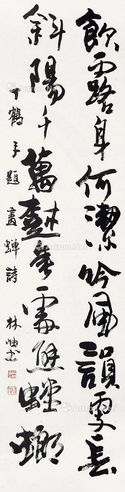 飲露身何潔吟風韻更長
斜陽千萬樹無處避螳螂
丁鶴年題畫蟬詩 林岫書